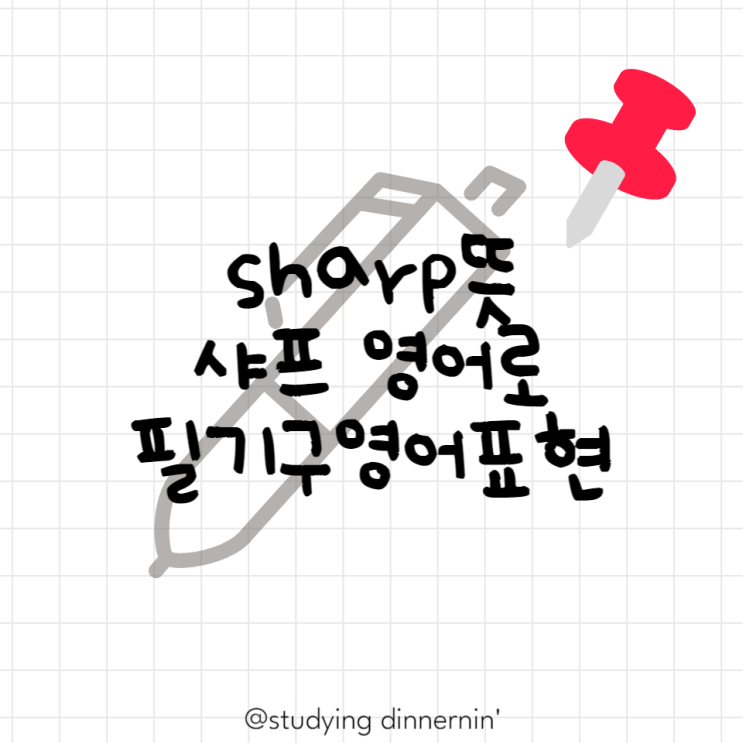 sharp뜻
샤프 영어로
필기구영어표현
@studying dinnernin'